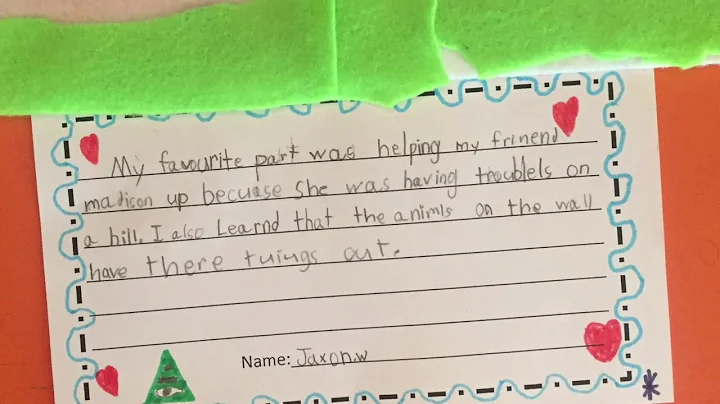 My favourite part was helping my frinend
madison up becuase she was having troublels on
a hill. I also Learnd that the animls on the wall
have there tuiugs out.
Name: Jaxon.w